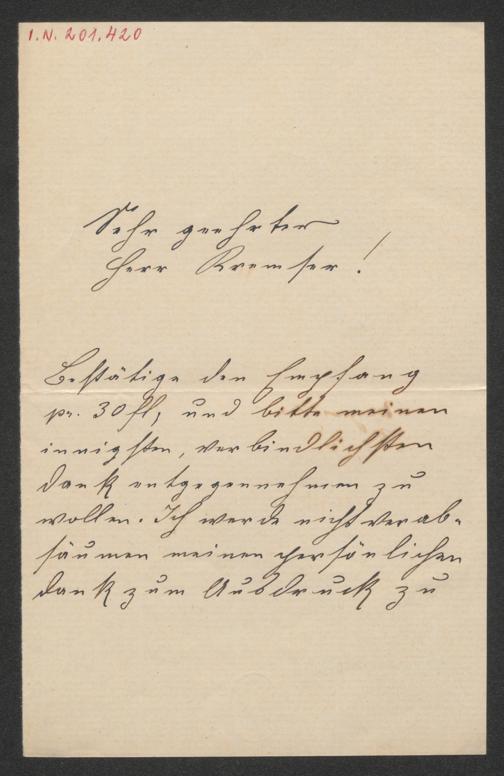 I.N. 201.420
Sehr geehrter
Herr Kremser!
Bestätige den Empfang
pr. 30 fl, und bitte meinen
innigsten, verbindlichsten
Dank entgegennehmen zu
wollen. Ich werde nicht verab-
säumen meinen persönlichen
Dank zum Ausdruck zu